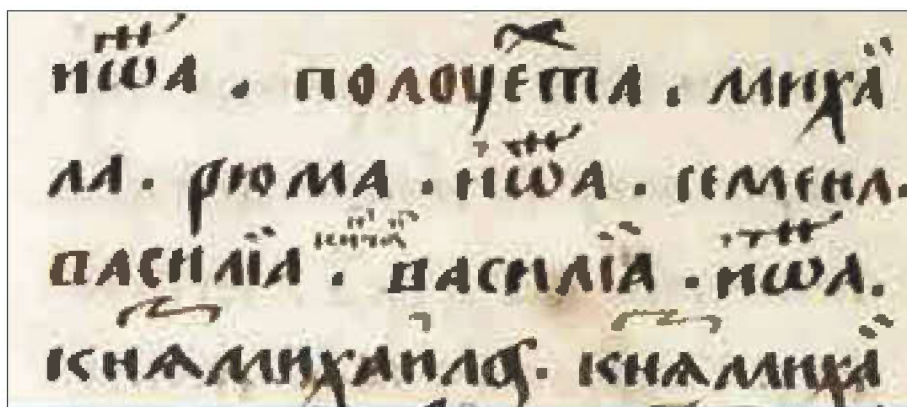 иѡⷩ҇а . полоуеⷦ҇та . михаи
ла . рюма . иѡⷩ҇а . семена .
василїа . василїа . иѡⷩ҇а .
кнѧⷥ҇михаилоу . кнѧⷥ҇михаи